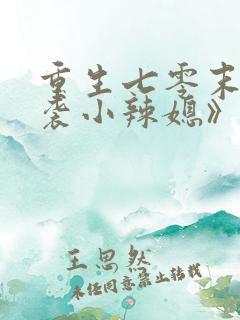 重生七零末
袭小辣媳》
王思然
未经同意禁止转载